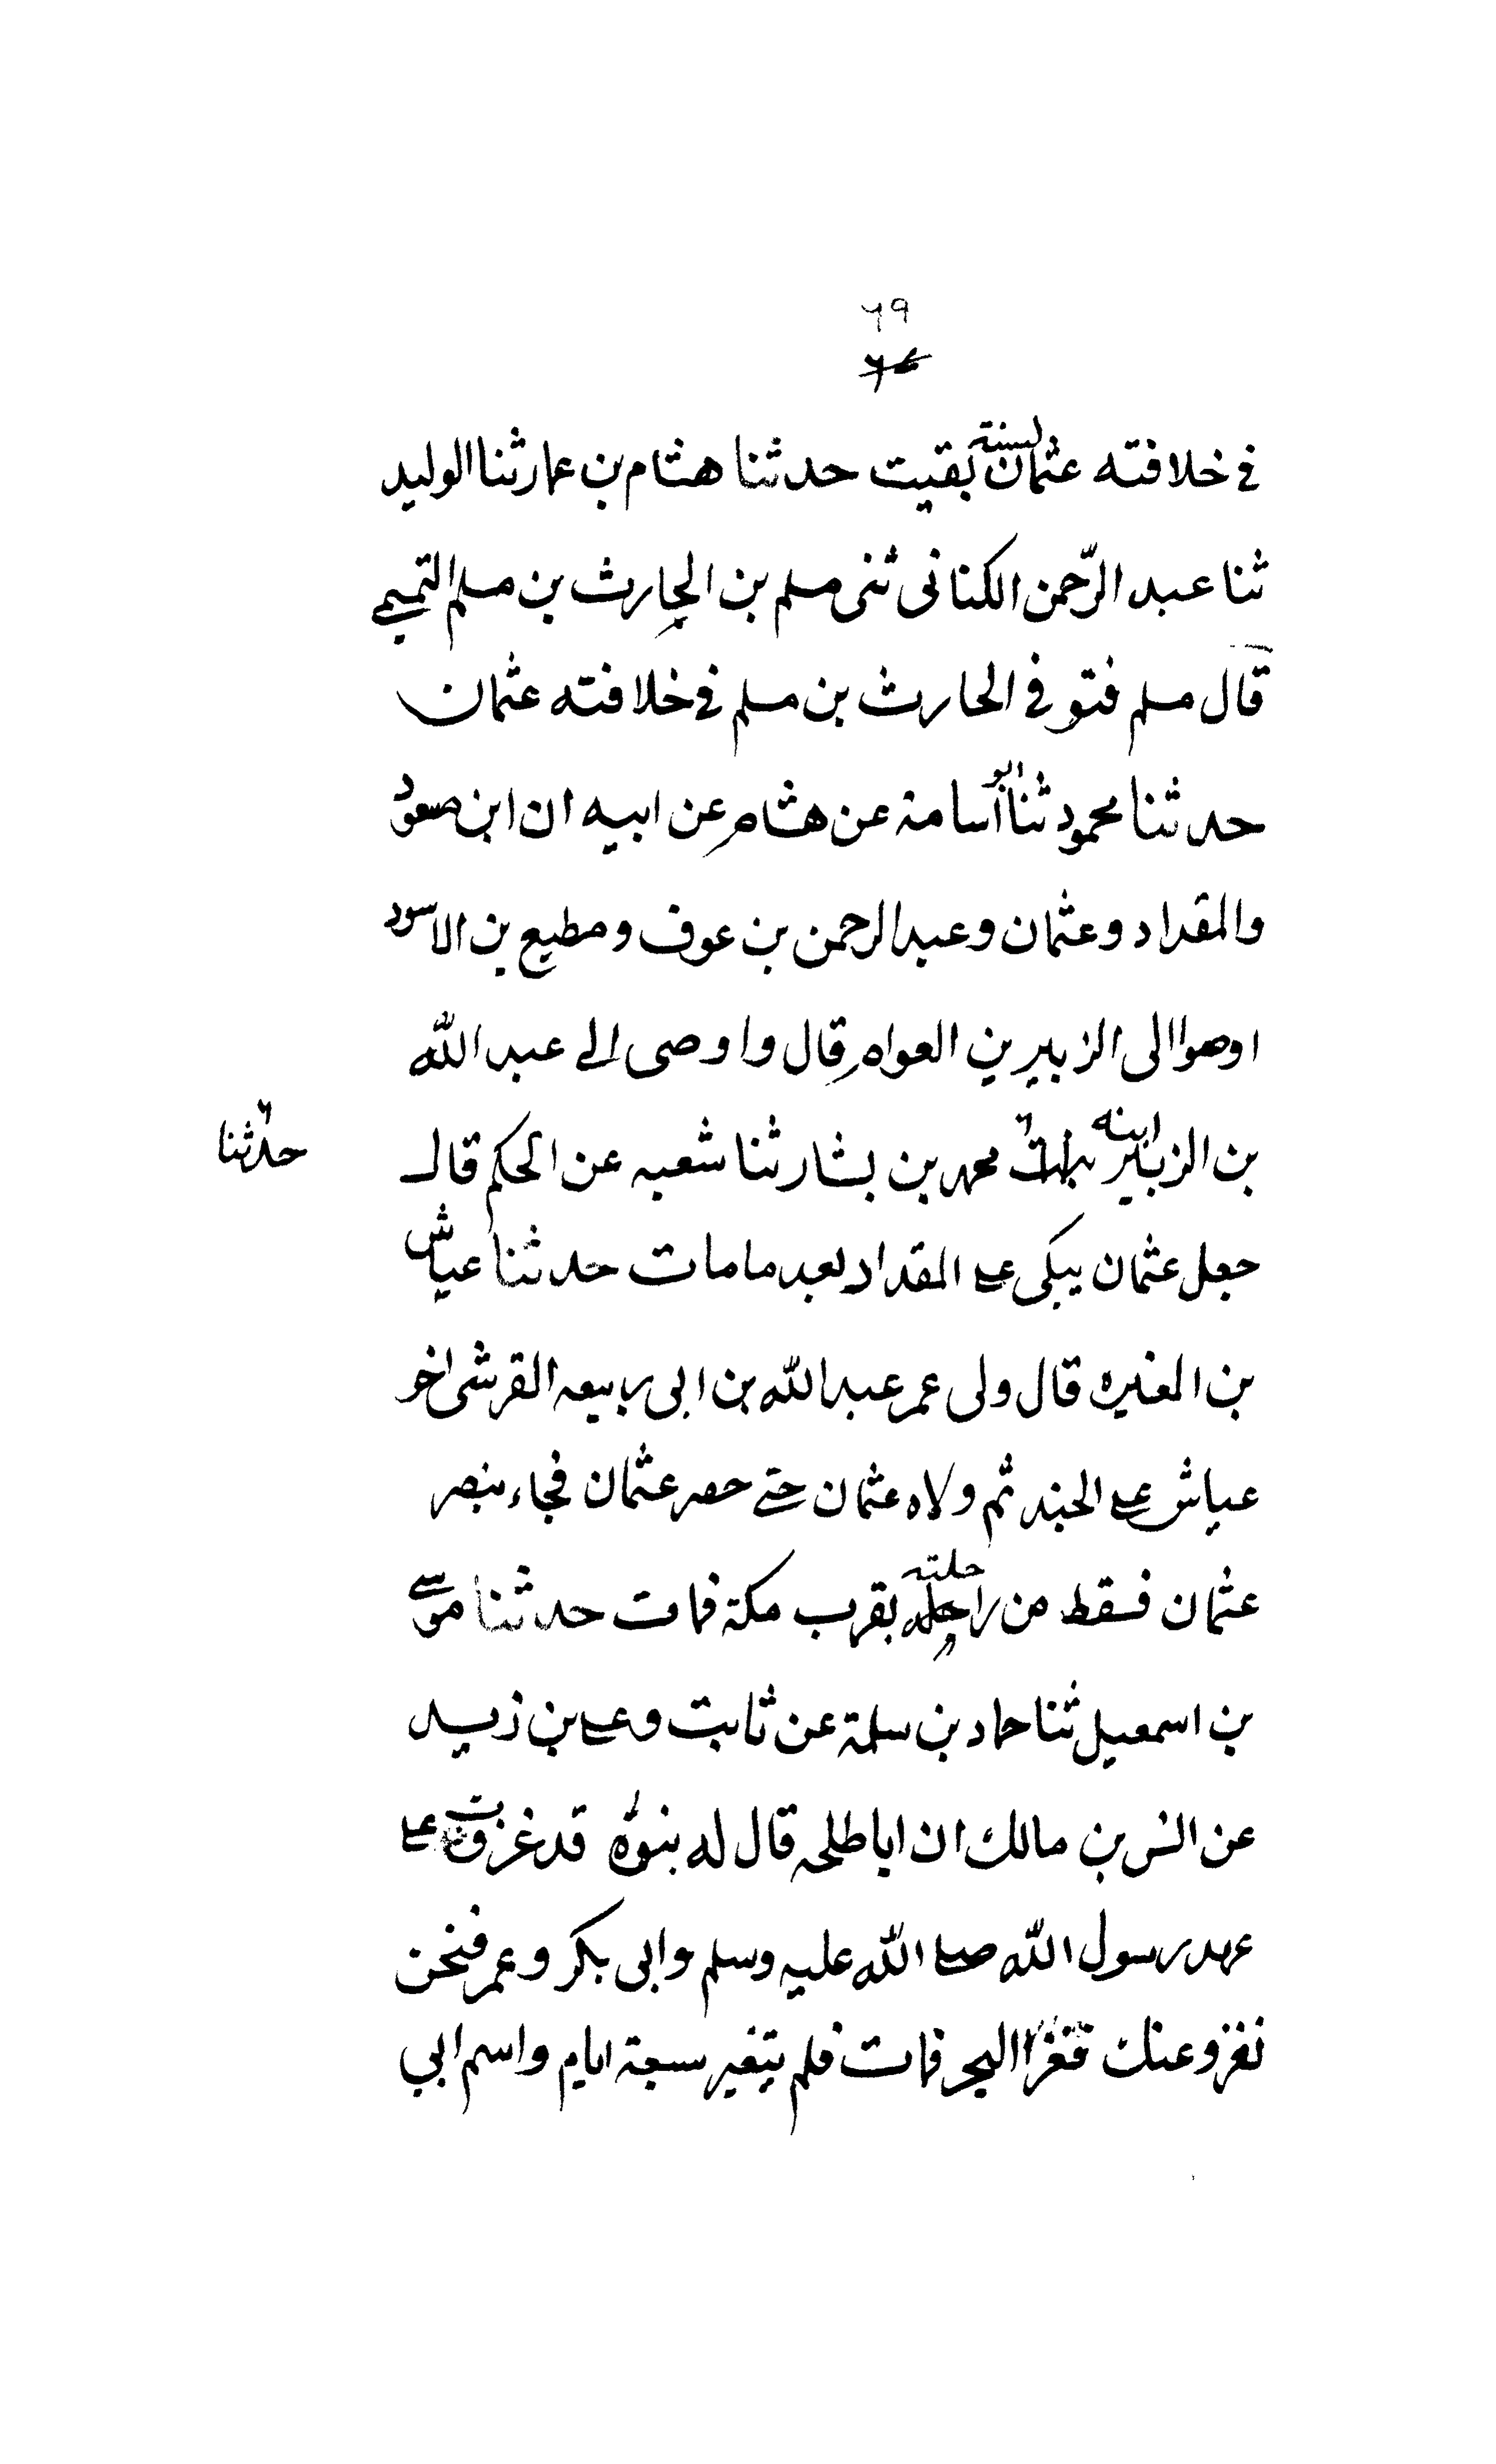 ٦٩
في خلافته عثمان لسنة بقيت حدثنا هشام بن عمار ثنا الوليد
ثنا عبد الرّحمن الكناني ثنى مسلم بن الحارث بن مسلم التميمي
قال مسلم فتوفي الحارث بن مسلم في خلافته عثمان
حدثنا محمود ثنا ابو أسامة عن هشام عن ابيه ان ابن مسعود
والمقداد وعثمان وعبد الرحمن بن عوف ومطيع بن الاسود
اوصوا الى الزبير بن العوام قال واوصى الى عبد الله
بن الزبير ابنه محمد بن بشار ثنا شعبه عن الحكم قال
حدثنا
جعل عثمان يبكي على المقداد بعد ما مات حدثنا عياش
بن المغيره قال ولى عمر عبد الله بن ابي ربيعه القرشي اخو
عياش على الجند ثم ولاه عثمان حتى حصر عثمان فجاء ينصر
عثمان فسقط من راحلته بقرب مكة فمات حدثنا موسى
بن اسمعيل ثنا حماد بن سلمة عن ثابت وعلى بن زيد
عن انس بن مالك ان ابا طلحه قال له بنوه قد غزوت على
عهد رسول الله صلى الله عليه وسلم وابي بكر وعمر فنحن
نغزو عنك فغزا البحر فمات فلم يتغير سبعة ايام واسم ابي